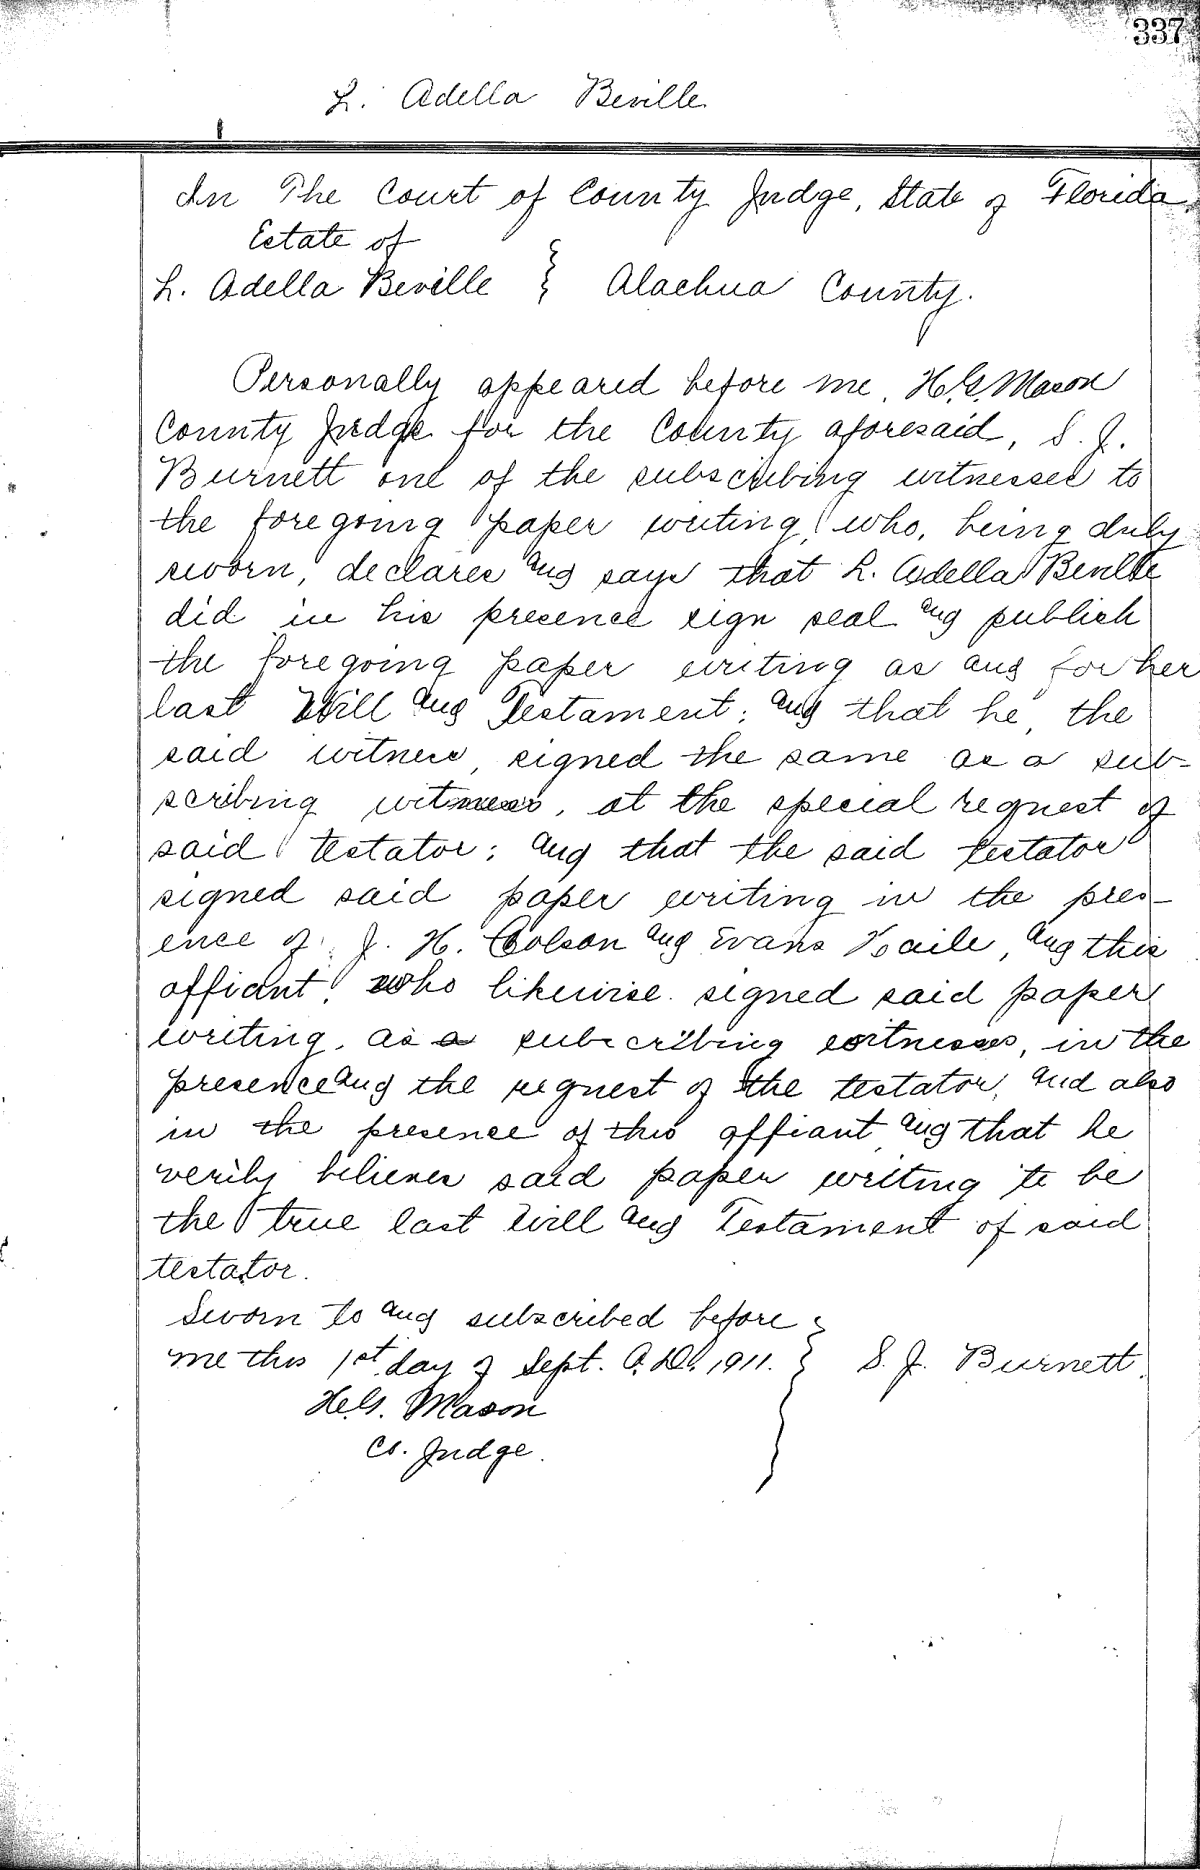 337
L. Adella Beville
In The Court of County Judge, State of Florida.
Estate of
L. Adella Beville } Alachua County.
Personally appeared before me, H.G. Mason
County Judge for the County aforesaid, S. J.
Burnett one of the subscribing witnesses to
the foregoing paper writing, who, being duly
sworn, declares and says that L. Adella Beville
did in his presence sign seal and publish
the foregoing paper writing as and for her
last Will and Testament; and that he, the
said witness, signed the same as a sub-
scribing witness, at the special request of
said testator; and that the said testator
signed said paper writing in the pres-
ence of J. H. Colson and Evans Haile, and this
affiant, who likewise signed said paper
writing, as a subscribing witnesses, in the
presence and the request of the testator, and also
in the presence of this affiant and that he
verily believes said paper writing to be
the true last Will and Testament of said
testator.
Sworn to and subscribed before
me this 1st day of Sept. A.D. 1911. } S. J. Burnett.
H.G. Mason
Co. Judge.